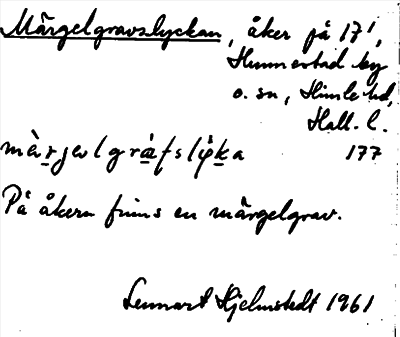 Märgelgravslyckan, åker på 17¹,
Hunnestad by
o. sn, Himle hd,
Hall. l.
177
På åkern finns en märgelgrav.
Lennart Hjelmstedt 1961